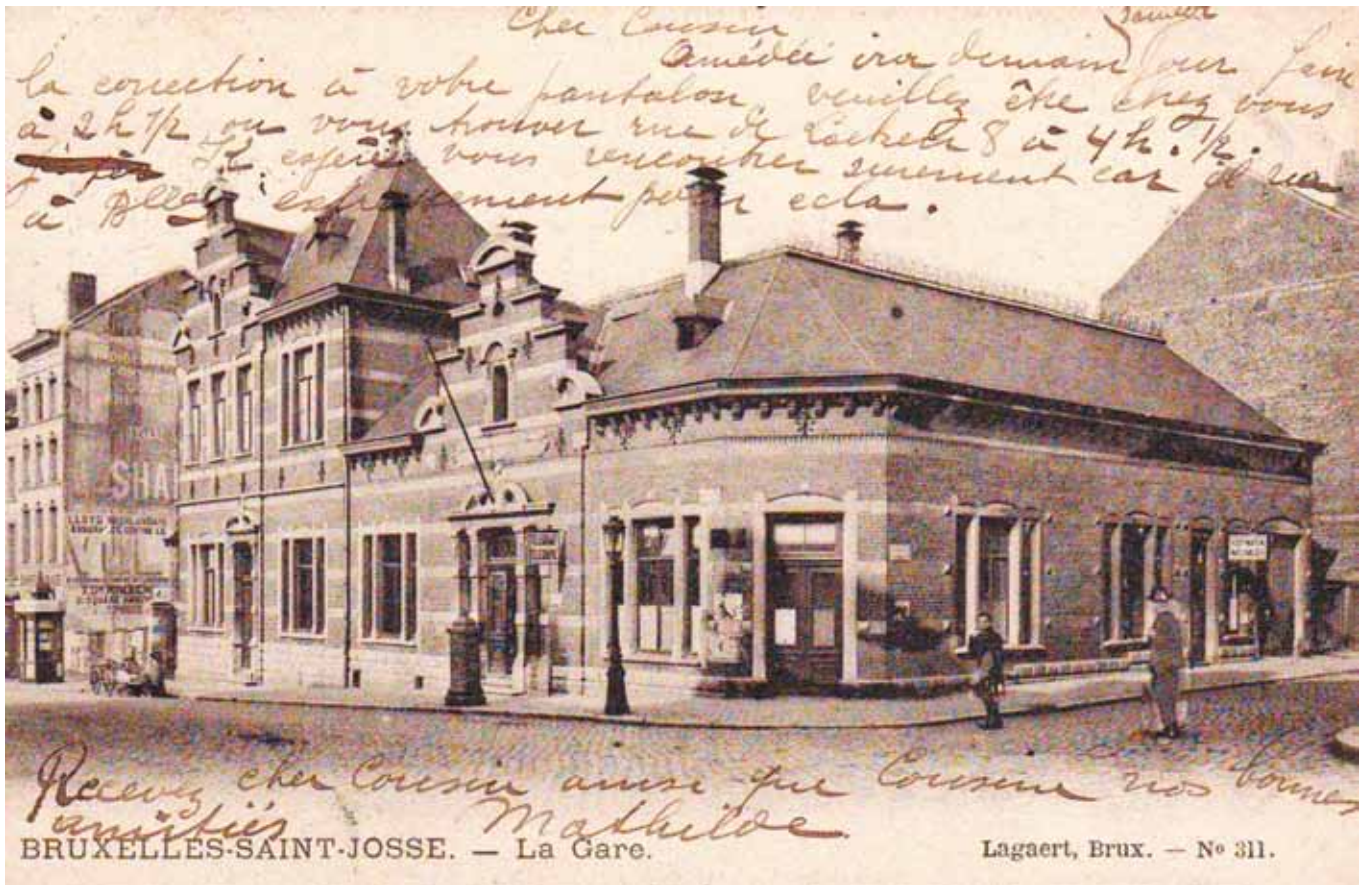 Cher Cousin
samedi
Amédée ira demain pour faire
la correction à votre pantalon, veuillez être chez vous
à 2h 1/2 ou vous trouver rue de 8 à 4h. 1/2.
Il espère vous rencontrer surement car il va
à expressément pour cela.
SHA
Recevez cher Cousin ainsi que Cousine nos bonnes
amitiés Mathilde
BRUXELLES-SAINT-JOSSE. — La Gare.
Lagaert, Brux. — No 311.